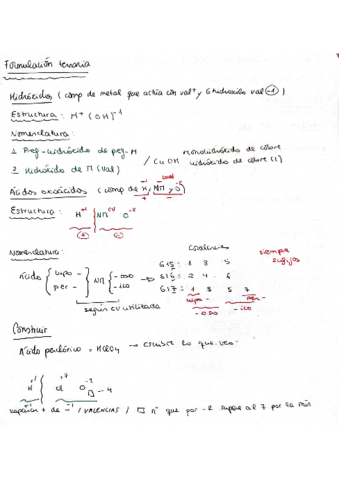 Formulación ternaria
Hidróxidos (comp de metal que actúa con val+ y G hidroxilo val -1)
Estructura: M+ (OH)-1
Nomenclatura:
1 Pref-hidróxido de pref-M
monohidróxido de cobre
/ CuOH hidróxido de cobre (I)
2 Hidróxido de M (val)
Ácidos oxoácidos (comp de H, NM y O)
Estructura: H+1 NM CV O-2
Nomenclatura:
Ácido { hipo- per- } NM { -oso -ico
según CV utilizada
G15: 1 3 5
G16: 2 4 6
G17: 1 3 5 7
hipo- per-
-oso -ico
siempre sufijos
Construir
Ácido perclórico = HClO4 → escribir lo que veo
+1 +7 -2
H Cl O □ -4
+ de -1 / VALENCIAS / □ nº que por -2 supere al 7 por la min